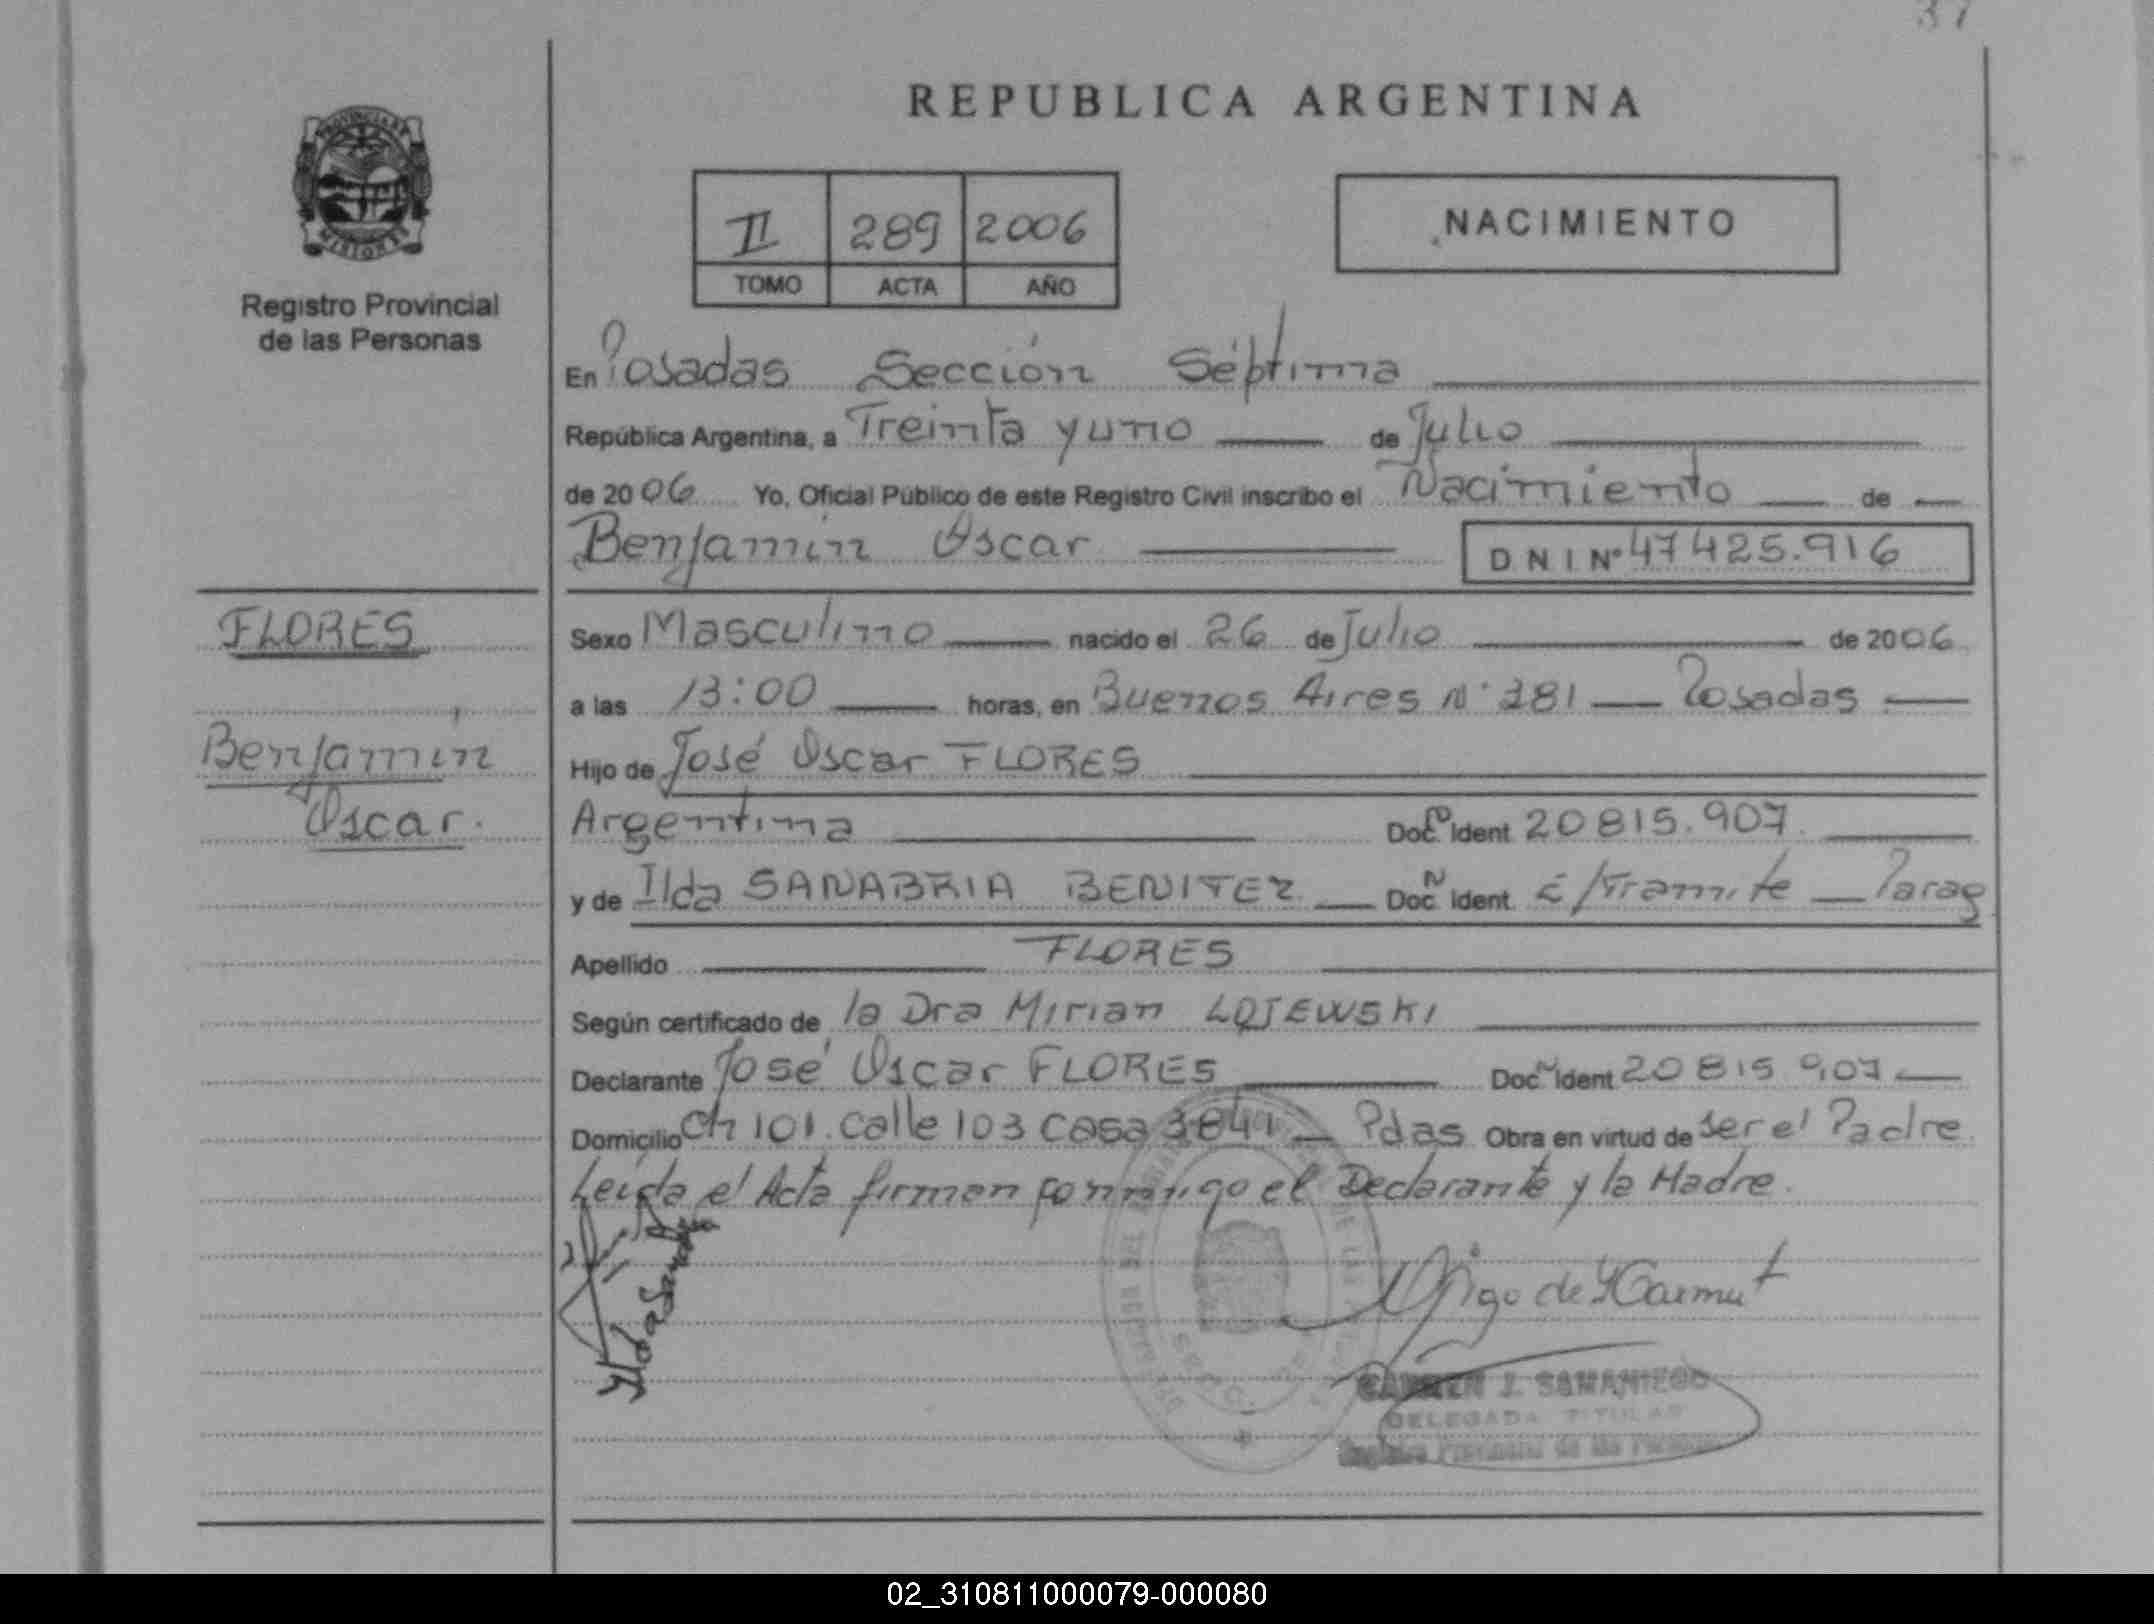 37
REPUBLICA ARGENTINA
Registro Provincial
de las Personas
II 289 2006
TOMO ACTA AÑO
NACIMIENTO
En Posadas Sección Séptima
República Argentina, a Treinta y uno de Julio
de 2006 Yo, Oficial Público de este Registro Civil inscribo el Nacimiento de
Benjamín Oscar DNI Nº 47425.916
FLORES
Benjamín
Oscar.
Sexo Masculino nacido el 26 de Julio de 2006
a las 13:00 horas, en Buenos Aires Nº 181 Posadas
Hijo de José Oscar FLORES
Argentina Doc Nº Ident. 20815.907
y de Ilda SANABRIA BENITEZ Doc N Ident. E/Tramite Parag
Apellido FLORES
Según certificado de la Dra Mirian LOJEWSKI
Declarante José Oscar FLORES Doc N Ident 20815 907
Domicilio Ch 101 Calle 103 Casa 3841 Pdas Obra en virtud de ser el Padre
Leída el Acta firman conmigo el Declarante y la Madre.
CARMEN J. SAMANIEGO
DELEGADA TITULAR
Registro Provincial de las Personas
02_310811000079-000080